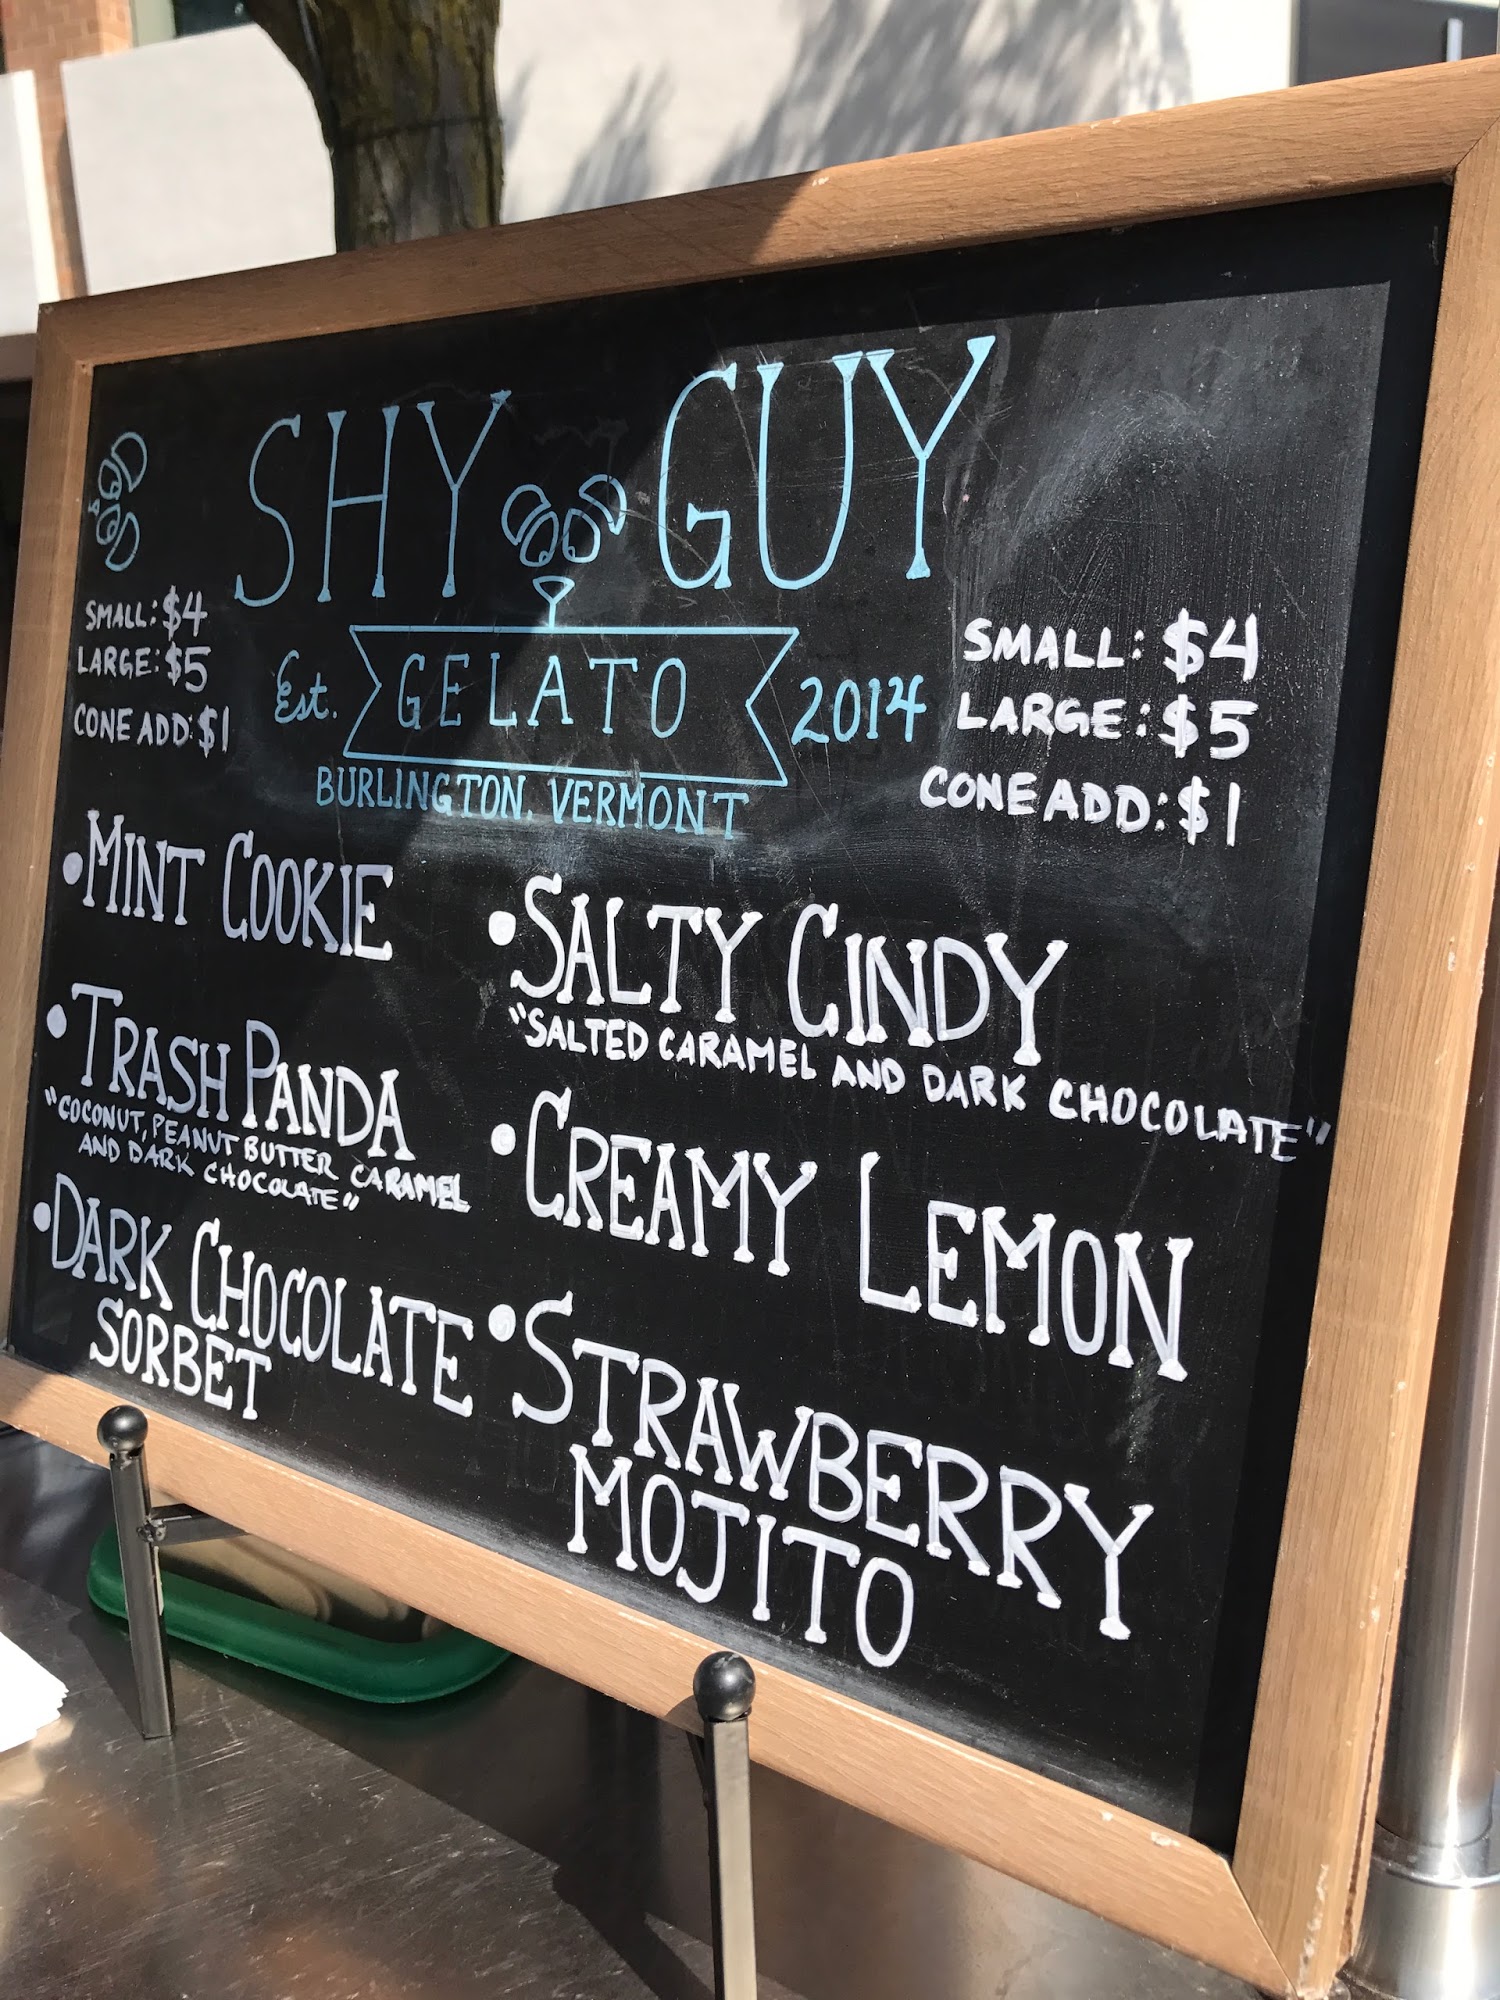 SHY GUY
SMALL: $4
LARGE: $5
CONE ADD: $1
Est. GELATO 2014
BURLINGTON, VERMONT
SMALL: $4
LARGE: $5
CONE ADD: $1
• MINT COOKIE
• TRASH PANDA
"COCONUT, PEANUT BUTTER CARAMEL
AND DARK CHOCOLATE"
• DARK CHOCOLATE
SORBET
• SALTY CINDY
"SALTED CARAMEL AND DARK CHOCOLATE"
• CREAMY LEMON
• STRAWBERRY
MOJITO